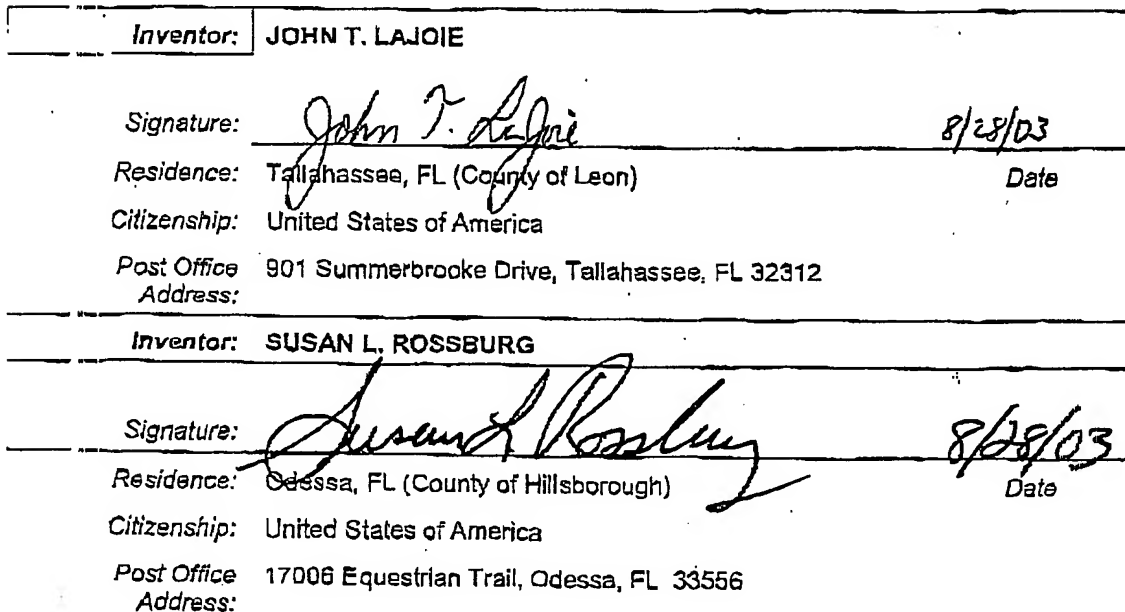 Inventor: JOHN T. LAJOIE
Signature: John T. LaJoie 8/28/03
Residence: Tallahassee, FL (County of Leon) Date
Citizenship: United States of America
Post Office 901 Summerbrooke Drive, Tallahassee, FL 32312
Address:
Inventor: SUSAN L. ROSSBURG
Signature: Susan L Rossburg 8/28/03
Residence: Odessa, FL (County of Hillsborough) Date
Citizenship: United States of America
Post Office 17006 Equestrian Trail, Odessa, FL 33556
Address: